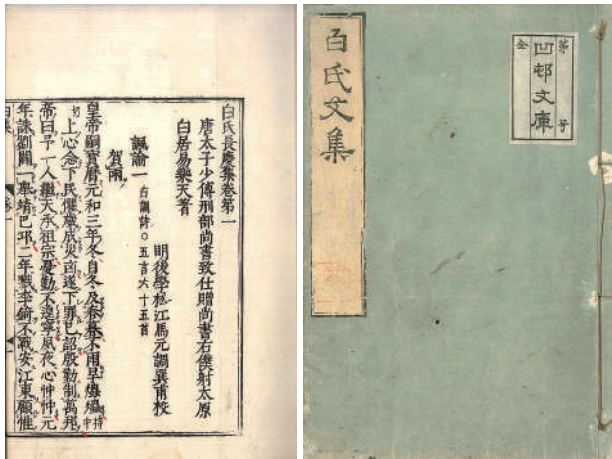 白氏長慶集卷第一
唐太子少傅刑部尚書致仕贈尚書右僕射太原
白居易樂天著
明後學松江馬元調巽甫校
諷諭一 古調詩○五言六十五首
賀雨
皇帝嗣寶曆元和三年冬自冬及春暮不雨旱爞爞持中
切上心念下民懼歲成災凶遂下罪己詔殷勤制萬邦
帝曰予一人繼天承祖宗憂勤不遑寧夙夜心忡忡元
年誅劉闢一舉靖巴邛二年戮李錡不戰安江東顧惟
第 号
凹邨文庫
全
白氏文集